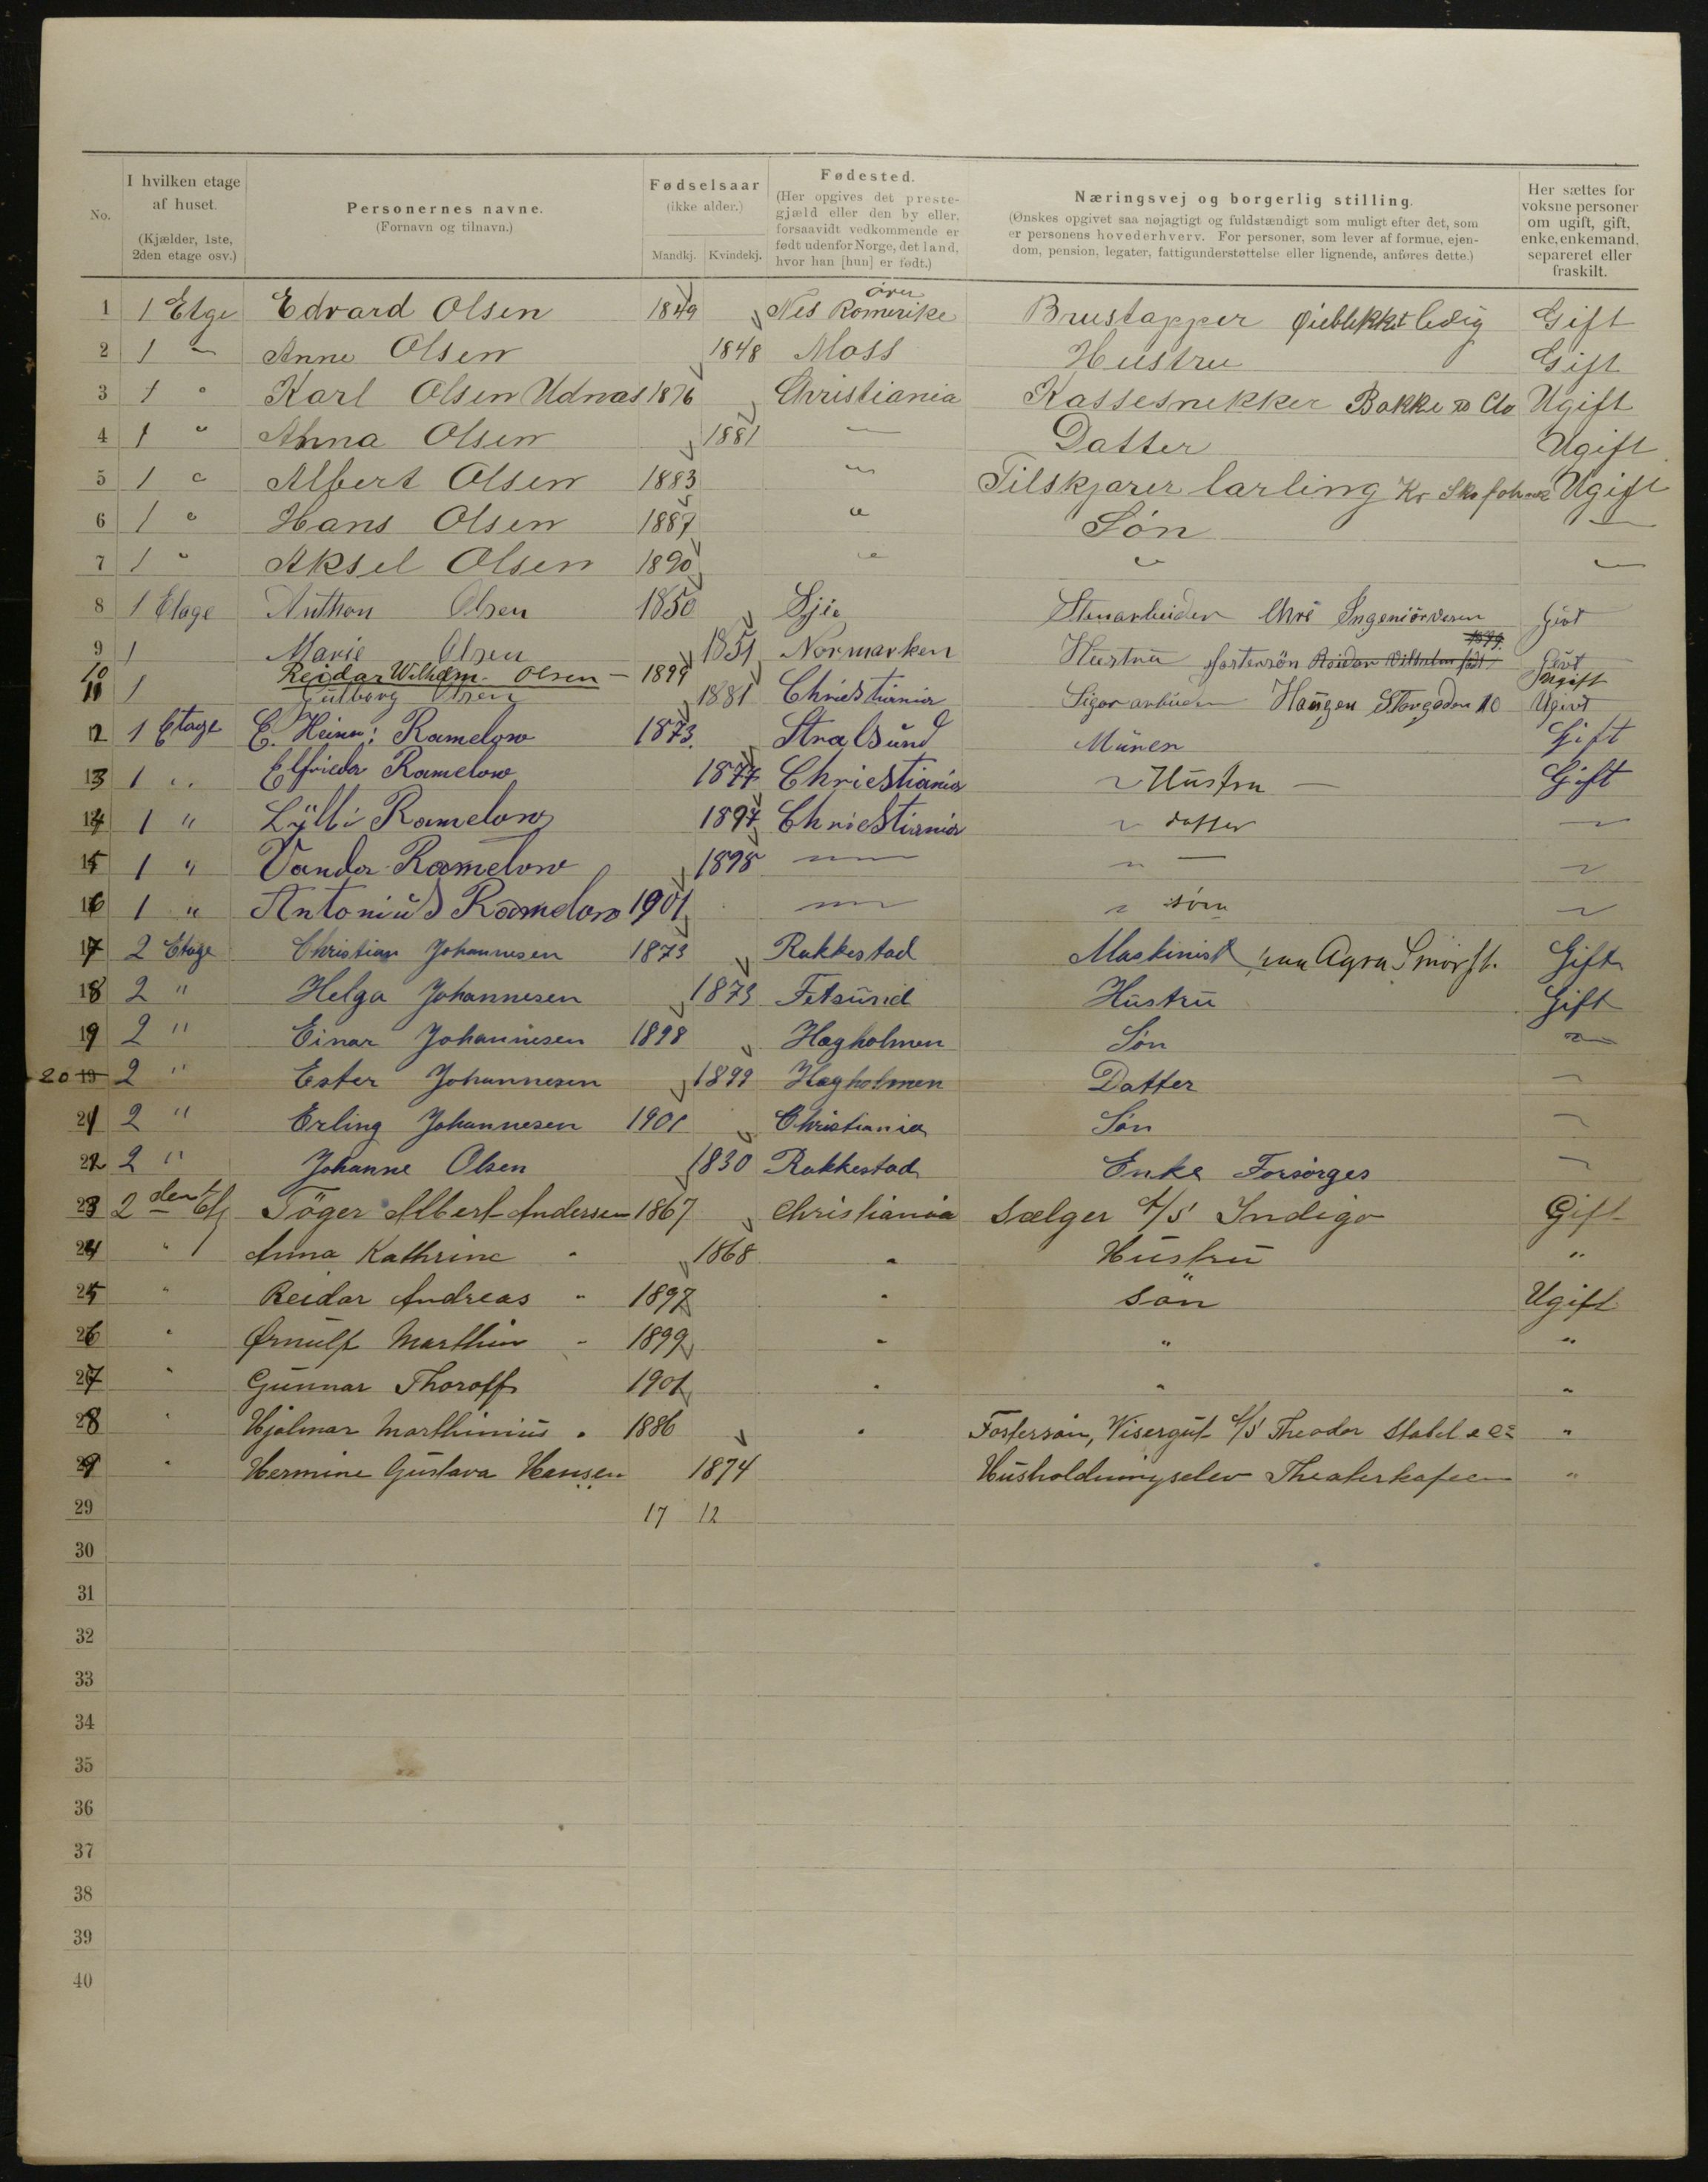 No. | I hvilken etage af huset. (Kjælder, 1ste, 2den etage osv.) | Personernes navne. (Fornavn og tilnavn.) | Fødselsaar (ikke alder.) Mandkj. Kvindekj. | Fødested. (Her opgives det prestegjæld eller den by eller, forsaavidt vedkommende er født udenfor Norge, det land, hvor han [hun] er født.) | Næringsvej og borgerlig stilling. (Ønskes opgivet saa nøjagtigt og fuldstændigt som muligt efter det, som er personens hovederhverv. For personer, som lever af formue, ejendom, pension, legater, fattigunderstøttelse eller lignende, anføres dette.) | Her sættes for voksne personer om ugift, gift, enke, enkemand, separeret eller fraskilt.
1 1 Etge Edvard Olsen 1849 Nes Romerike Brustapper Øieblikket ledig Gift
2 1 " Anne Olsen 1848 Moss Hustru Gift
3 1 " Karl Olsen Udnæs 1876 Christiania Kassesnekker Bakke & Co Ugift
4 1 " Anna Olsen 1881 " Datter Ugift
5 1 " Albert Olsen 1883 " Tilskjærer larling Kr Ugift
6 1 " Hans Olsen 1887 " Søn "
7 1 " Aksel Olsen 1890 " " "
8 1 Etage Anthon Olsen 1850 Stenarbeider Chra Ingeniörvesen Givt
9 1 Marie Olsen 1851 Normarken Hustru fostersön Reidar Vilhelm født 1899 Givt
10 Reidar Wilhelm Olsen 1899 Ugift
11 1 Gulborg Olsen 1881 Christiania Sigararbeider Haugen Storgaden 10 Ugivt
12 1 Etage C. Heinr: Ramelow 1873 Stralsund Murer Gift
13 1 " Elfrieda Ramelow 1877 Christiania " Hustru Gift
14 1 " Lylli Ramelow 1897 Christiania " datter "
15 1 " Vanda Ramelow 1898 " " "
16 1 " Antonius Ramelow 1901 " " søn "
17 2 Etage Christian Johannesen 1873 Rakkestad Maskinist paa Agra Smørf. Gift
18 2 " Helga Johannesen 1873 Fetsund Hustru Gift
19 2 " Einar Johannesen 1898 Hagholmen Søn "
20 19 2 " Ester Johannesen 1899 Hagholmen Datter "
21 2 " Erling Johannesen 1901 Christiania Søn "
22 2 " Johanne Olsen 1830 Rakkestad Enke Forsørges "
23 2den Etg Töger Albert Andersen 1867 Christiania Sælger A/S Indigo Gift
24 " Anna Kathrine " 1868 " Hustru "
25 " Reidar Andreas " 1897 " Søn Ugift
26 " Ørnulf Marthin " 1899 " " "
27 " Gunnar Thoralf 1901 " " "
28 " Hjalmar Marthinius " 1886 " Fostersøn, Visergut A/S Theodor Stabel & Co "
29 " Hermine Gustava Hansen 1874 Husholdningselev Theaterkafeen "
29 17 12
30
31
32
33
34
35
36
37
38
39
40